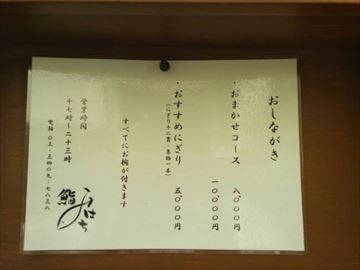 おしながき
・おまかせコース　八、〇〇〇円
一〇、〇〇〇円
・おすすめにぎり　五、〇〇〇円
(にぎり十二貫・巻物一本)
すべてにお椀が付きます
営業時間
十七時～二十三時
電話 〇三・三四〇九・七八三八
鮨